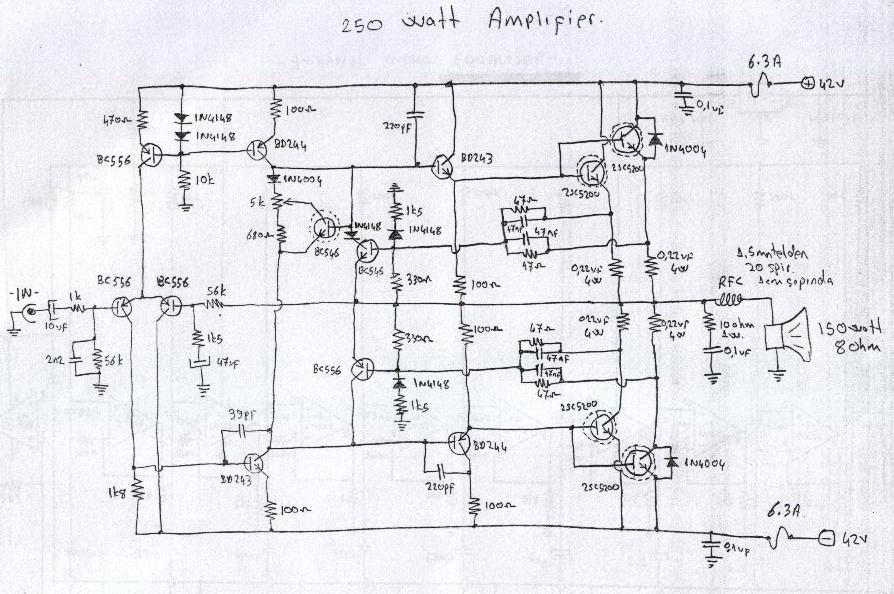 250 watt Amplifier.
6.3A
+ 42V
0,1uF
470Ω
1N4148
1N4148
100Ω
220pF
BC556
BD244
BD243
1N4004
2SC5200
2SC5200
10k
1N4004
5k
1k5
680Ω
1N4148
1N4148
BC546
BC546
47Ω
47nF
47nF
47Ω
330Ω
100Ω
0,22uF
4W
0,22uF
4W
1,5mm telden
20 spir.
1cm çapında
RFC
-IN-
10uF
1k
BC556
BC556
56k
1k5
47uF
2n2
56k
330Ω
100Ω
0,22uF
4W
0,22uF
4W
10ohm
1W.
0,1uF
150watt
8Ohm
BC556
1N4148
1k5
47Ω
47nF
47nF
47Ω
39pF
BD243
BD244
220pF
2SC5200
2SC5200
1N4004
1k8
100Ω
100Ω
6.3A.
0,1uF
- 42V